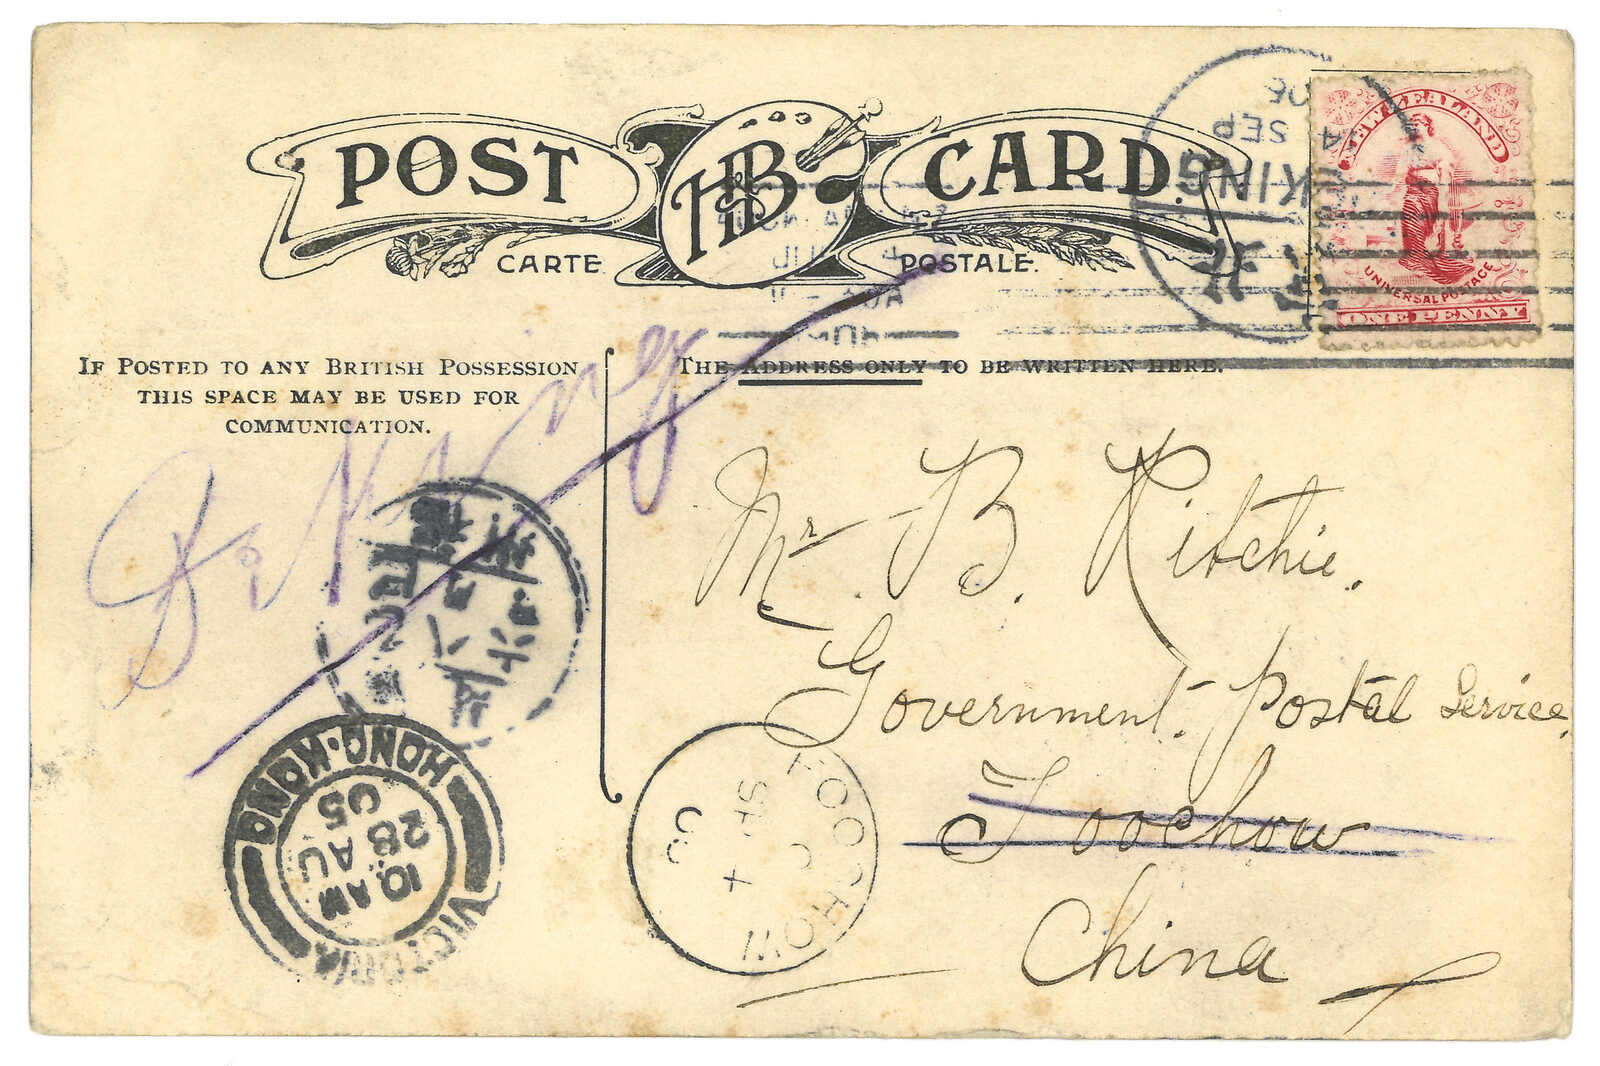 POST CARD.
H&B
CARTE POSTALE.
NEW ZEALAND
UNIVERSAL POSTAGE
ONE PENNY
KING
SEP
IF POSTED TO ANY BRITISH POSSESSION
THIS SPACE MAY BE USED FOR
COMMUNICATION.
THE ADDRESS ONLY TO BE WRITTEN HERE.
Peking
Mr B. Ritchie.
Government Postal Service,
Foochow
China
VICTORIA
HONG-KONG
10 AM
28 AU
05
FOOCHOW
SEP